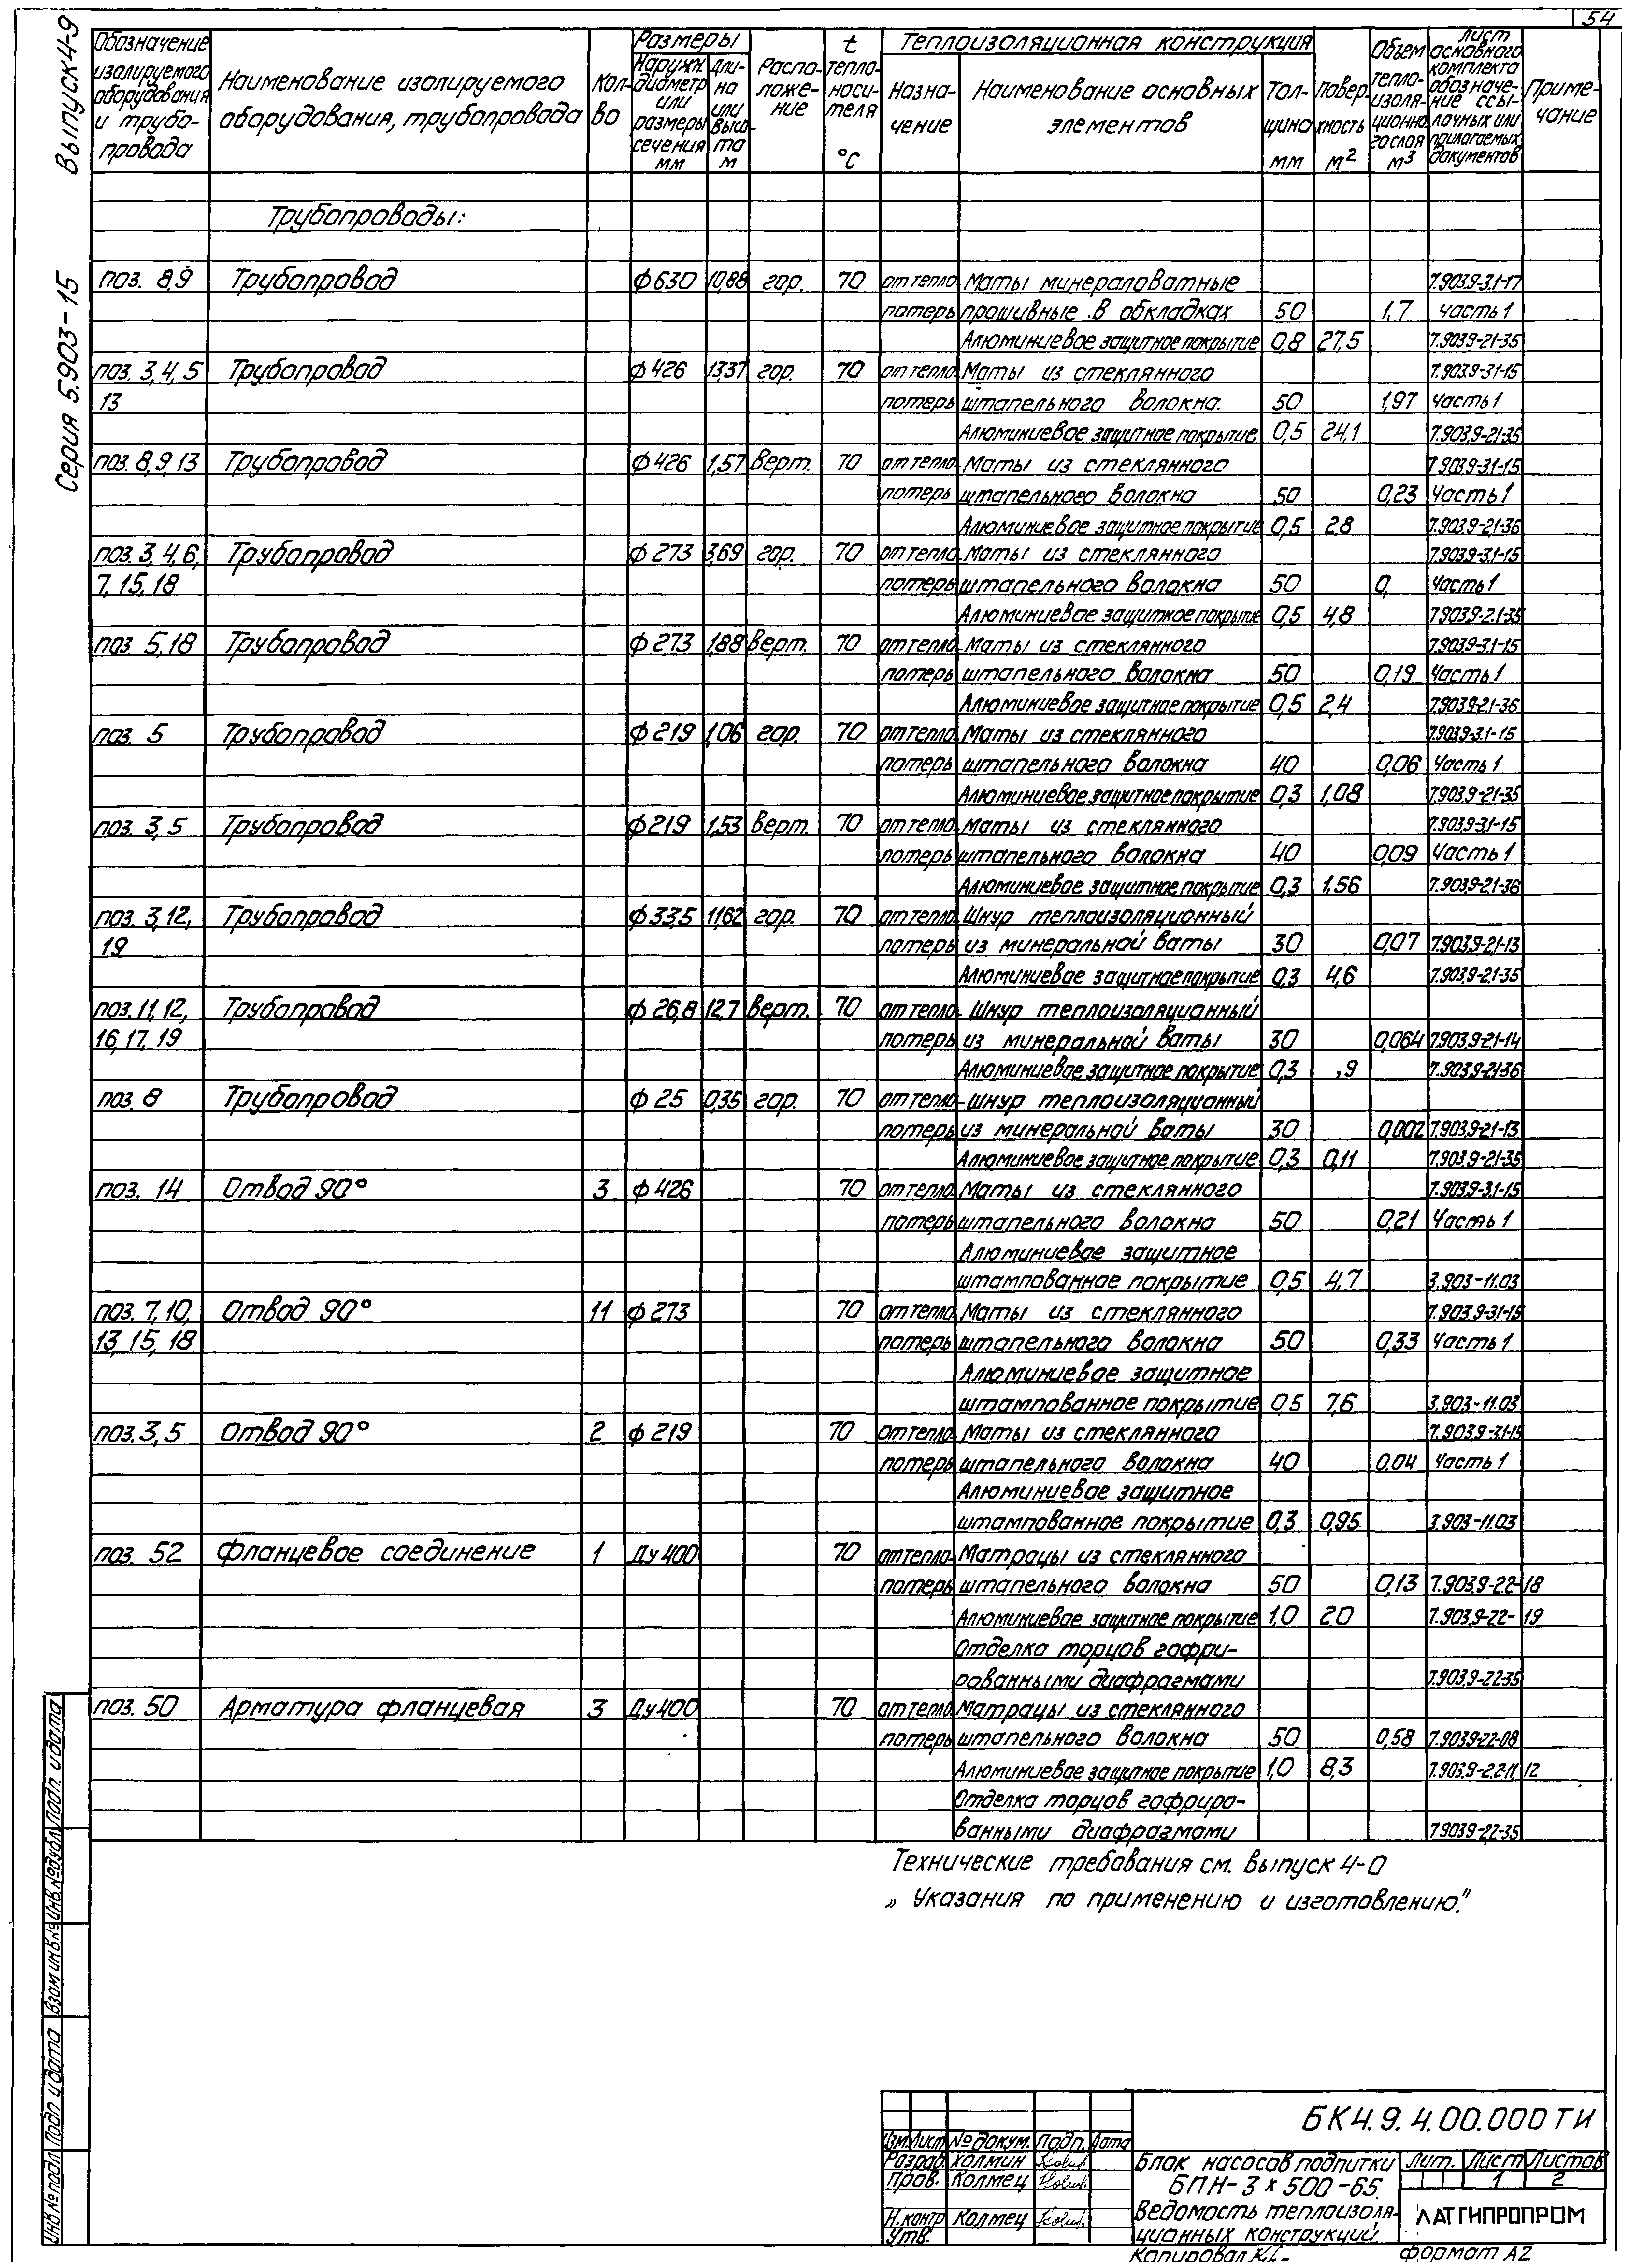 54
Серия 5.903-15 Выпуск 4-9
Обозначение изолируемого оборудования и трубо-провода
Наименование изолируемого оборудования, трубопровода
Кол-во
Размеры
Наружн. диаметр или размеры сечения мм
Дли-на или высо-та м
Распо-ложе-ние
t тепло-носи-теля °C
Теплоизоляционная конструкция
Назна-чение
Наименование основных элементов
Тол-щина мм
Повер-хность м²
Объем тепло-изоля-ционно-го слоя м³
Лист основного комплекта обозначе-ние ссы-лочных или прилагаемых документов
Приме-чание
Трубопроводы:
поз. 8,9 Трубопровод ф630 10,88 гор. 70 от тепло- Маты минераловатные 7.903.9-3.1-17
потерь прошивные в обкладках 50 1,7 часть 1
Алюминиевое защитное покрытие 0,8 27,5 7.903.9-2.1-35
поз. 3,4,5 Трубопровод ф426 13,37 гор. 70 от тепло- Маты из стеклянного 7.903.9-3.1-15
13 потерь штапельного волокна. 50 1,97 часть 1
Алюминиевое защитное покрытие 0,5 24,1 7.903.9-2.1-35
поз. 8,9,13 Трубопровод ф426 1,57 Верт. 70 от тепло- Маты из стеклянного 7.903.9-3.1-15
потерь штапельного волокна 50 0,23 часть 1
Алюминиевое защитное покрытие 0,5 2,8 7.903.9-2.1-36
поз. 3,4,6, Трубопровод ф273 3,69 гор. 70 от тепло- Маты из стеклянного 7.903.9-3.1-15
7,15,18 потерь штапельного волокна 50 0, часть 1
Алюминиевое защитное покрытие 0,5 4,8 7.903.9-2.1-35
поз 5,18 Трубопровод ф273 1,88 Верт. 70 от тепло- Маты из стеклянного 7.903.9-3.1-15
потерь штапельного волокна 50 0,19 часть 1
Алюминиевое защитное покрытие 0,5 2,4 7.903.9-2.1-36
поз. 5 Трубопровод ф219 1,06 гор. 70 от тепло- Маты из стеклянного 7.903.9-3.1-15
потерь штапельного волокна 40 0,06 часть 1
Алюминиевое защитное покрытие 0,3 1,08 7.903.9-2.1-35
поз. 3,5 Трубопровод ф219 1,53 Верт. 70 от тепло- Маты из стеклянного 7.903.9-3.1-15
потерь штапельного волокна 40 0,09 часть 1
Алюминиевое защитное покрытие 0,3 1.56 7.903.9-2.1-36
поз. 3,12, Трубопровод ф33,5 11,62 гор. 70 от тепло- Шнур теплоизоляционный
19 потерь из минеральной ваты 30 0,07 7.903.9-2.1-13
Алюминиевое защитное покрытие 0,3 4,6 7.903.9-2.1-35
поз. 11,12, Трубопровод ф26,8 12,7 Верт. 70 от тепло- Шнур теплоизоляционный
16,17,19 потерь из минеральной ваты 30 0,064 7.903.9-2.1-14
Алюминиевое защитное покрытие 0,3 ,9 7.903.9-2.1-36
поз. 8 Трубопровод ф25 0,35 гор. 70 от тепло- Шнур теплоизоляционный
потерь из минеральной ваты 30 0,002 7.903.9-2.1-13
Алюминиевое защитное покрытие 0,3 0,11 7.903.9-2.1-35
поз. 14 Отвод 90° 3 ф426 70 от тепло- Маты из стеклянного 7.903.9-3.1-15
потерь штапельного волокна 50 0,21 Часть 1
Алюминиевое защитное
штампованное покрытие 0,5 4,7 3.903-11.03
поз. 7,10, Отвод 90° 11 ф273 70 от тепло- Маты из стеклянного 7.903.9-3.1-15
13,15,18 потерь штапельного волокна 50 0,33 Часть 1
Алюминиевое защитное
штампованное покрытие 0,5 7,6 3.903-11.03
поз. 3,5 Отвод 90° 2 ф219 70 от тепло- Маты из стеклянного 7.903.9-3.1-15
потерь штапельного волокна 40 0,04 Часть 1
Алюминиевое защитное
штампованное покрытие 0,3 0,95 3.903-11.03
поз. 52 Фланцевое соединение 1 Ду400 70 от тепло- Матрацы из стеклянного
потерь штапельного волокна 50 0,13 7.903.9-2.2-18
Алюминиевое защитное покрытие 1,0 2,0 7.903.9-2.2-19
Отделка торцов гофри-
рованными диафрагмами 7.903.9-2.2-35
поз. 50 Арматура фланцевая 3 Ду400 70 от тепло- Матрацы из стеклянного
потерь штапельного волокна 50 0,58 7.903.9-2.2-08
Алюминиевое защитное покрытие 1,0 8,3 7.903.9-2.2-11,12
Отделка торцов гофриро-
ванными диафрагмами 7.903.9-2.2-35
Технические требования см. выпуск 4-0
„Указания по применению и изготовлению."
Инв № подл Подп и дата Взам инв.№ Инв.№ дубл. Подп. и дата
БК4.9.4.00.000 ТИ
Изм. Лист № докум. Подп. Дата
Разраб. Холмин
Пров. Колмец
Н.контр Колмец
Утв.
Блок насосов подпитки
БПН-3х500-65.
Ведомость теплоизоля-
ционных конструкций.
Лит. Лист Листов
1 2
ЛАТГИПРОПРОМ
Копировал
Формат А2